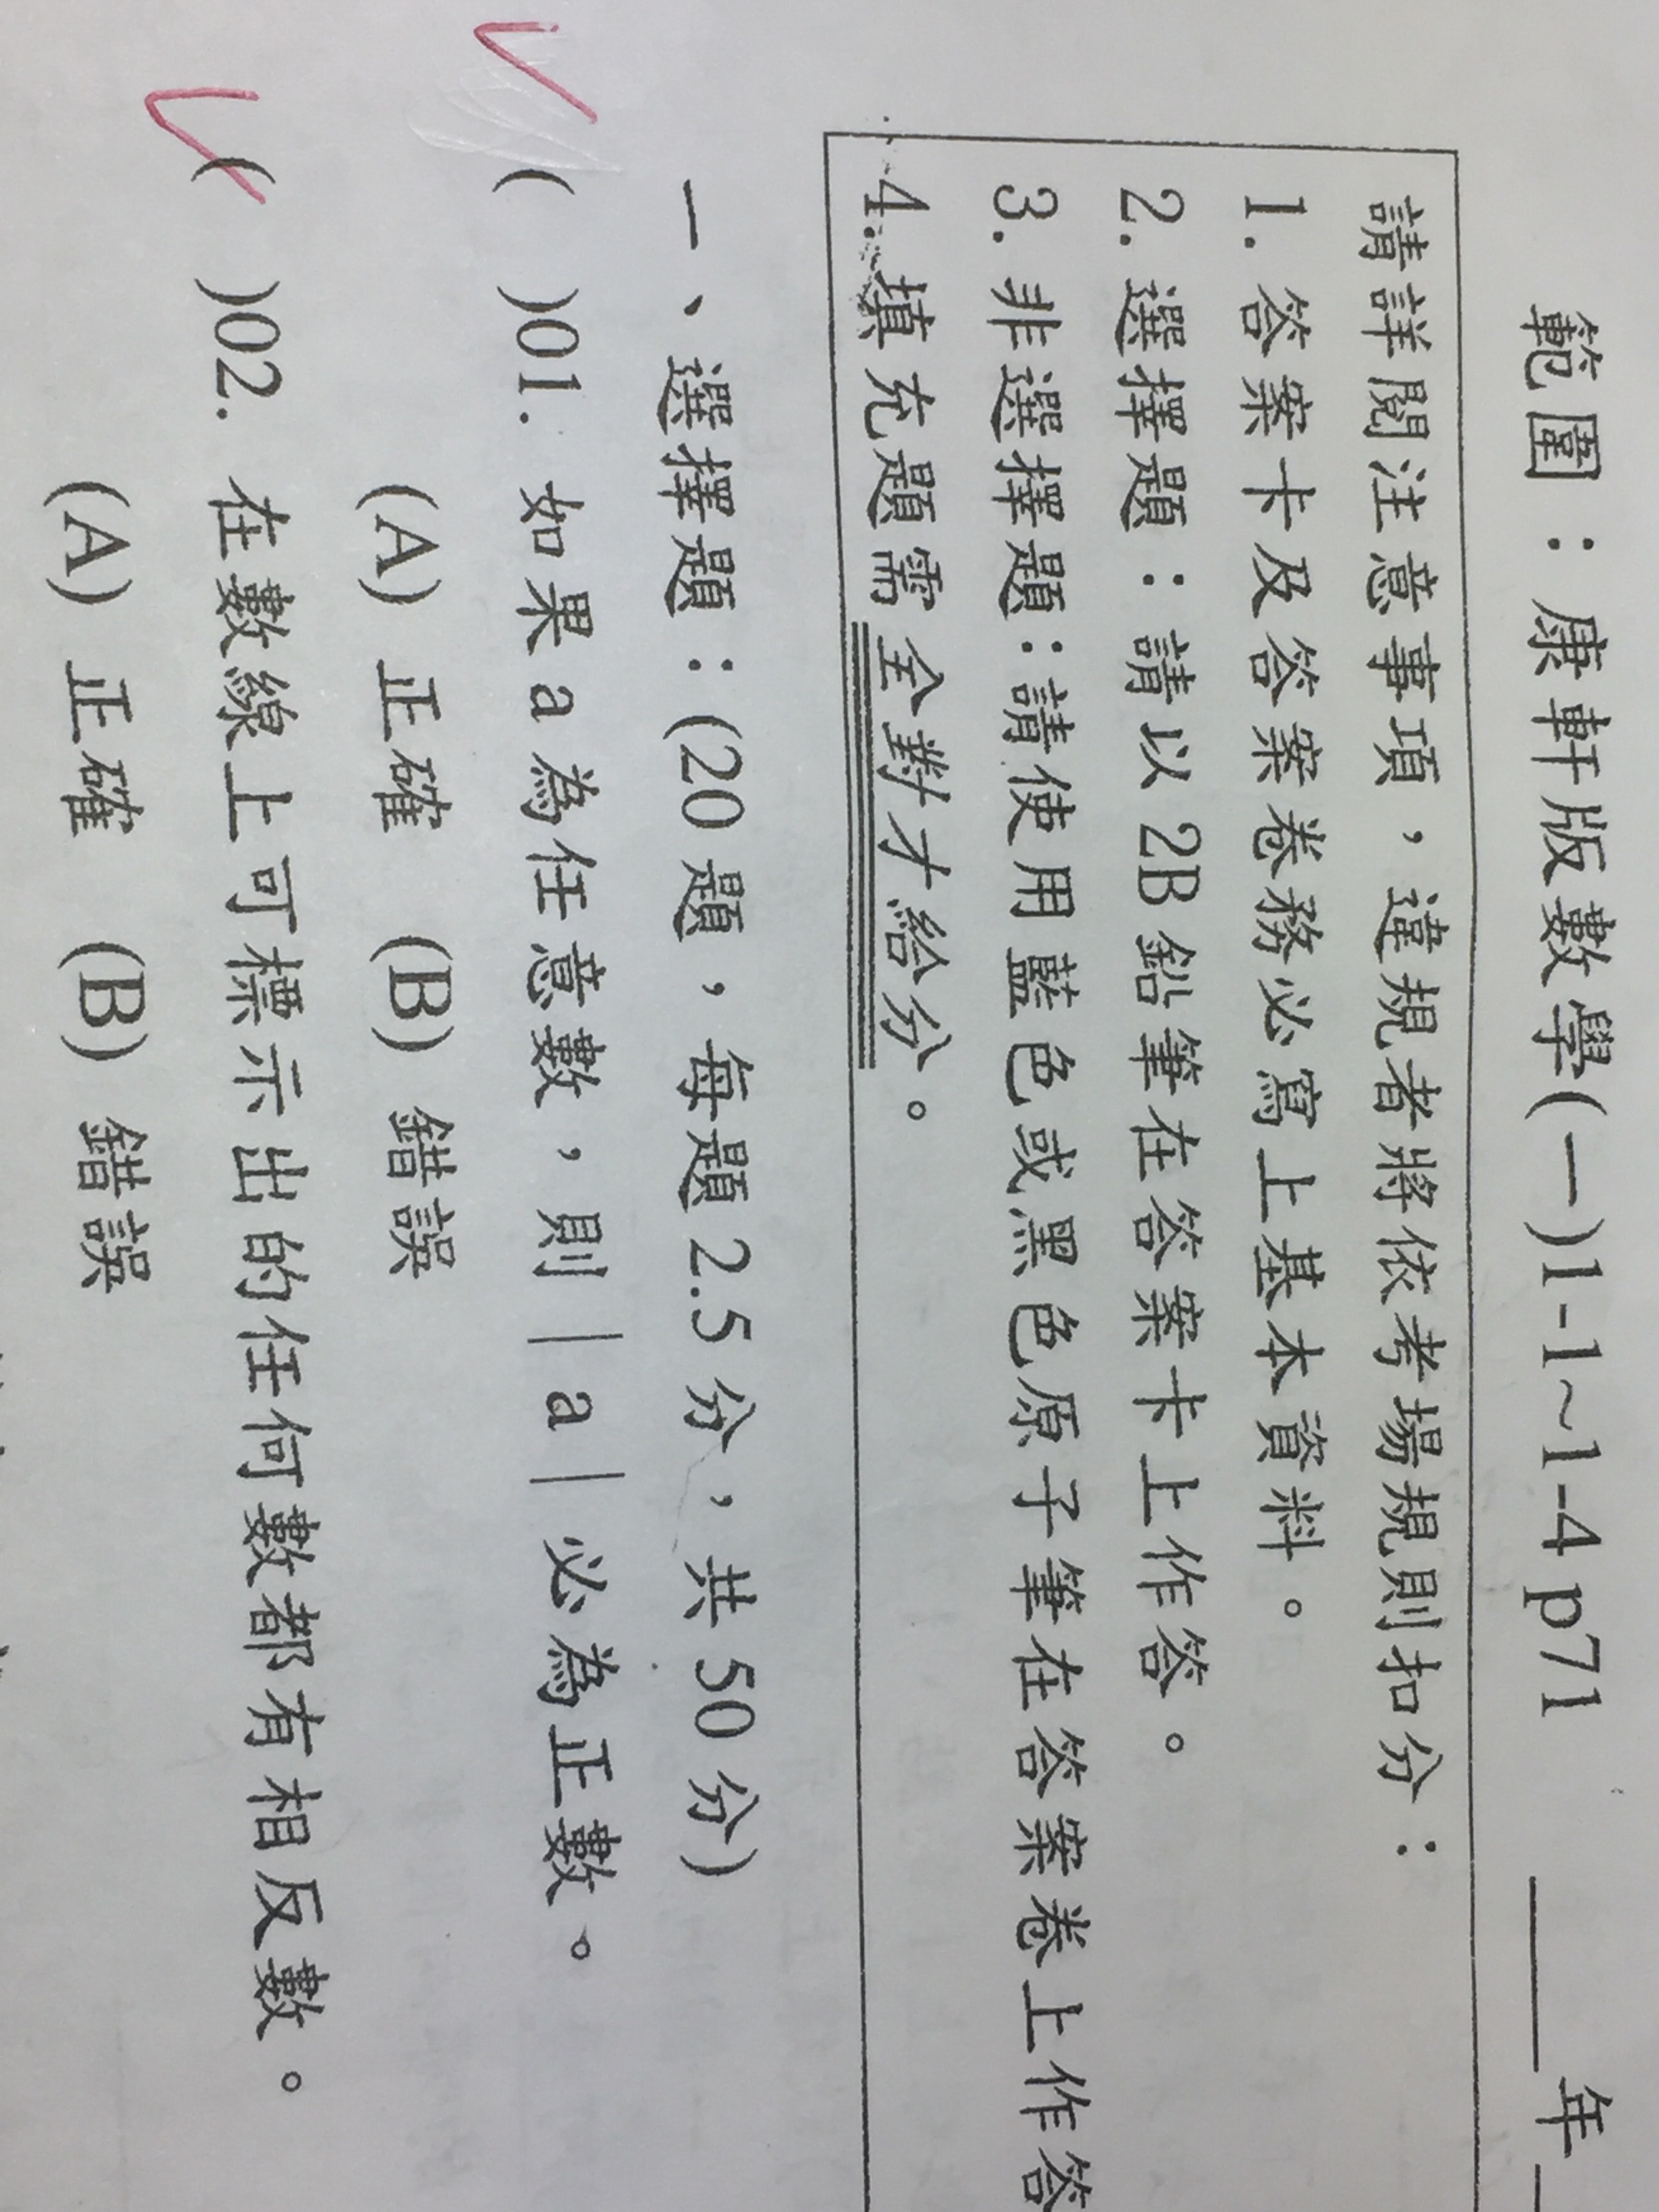 範圍：康軒版數學(一)1-1~1-4 p71 ____年_
請詳閱注意事項，違規者將依考場規則扣分：
1. 答案卡及答案卷務必寫上基本資料。
2. 選擇題：請以 2B 鉛筆在答案卡上作答。
3. 非選擇題：請使用藍色或黑色原子筆在答案卷上作答
4. 填充題需全對才給分。
一、選擇題：(20 題，每題 2.5 分，共 50 分)
( )01. 如果 a 為任意數，則｜a｜必為正數。
(A) 正確 (B) 錯誤
( )02. 在數線上可標示出的任何數都有相反數。
(A) 正確 (B) 錯誤